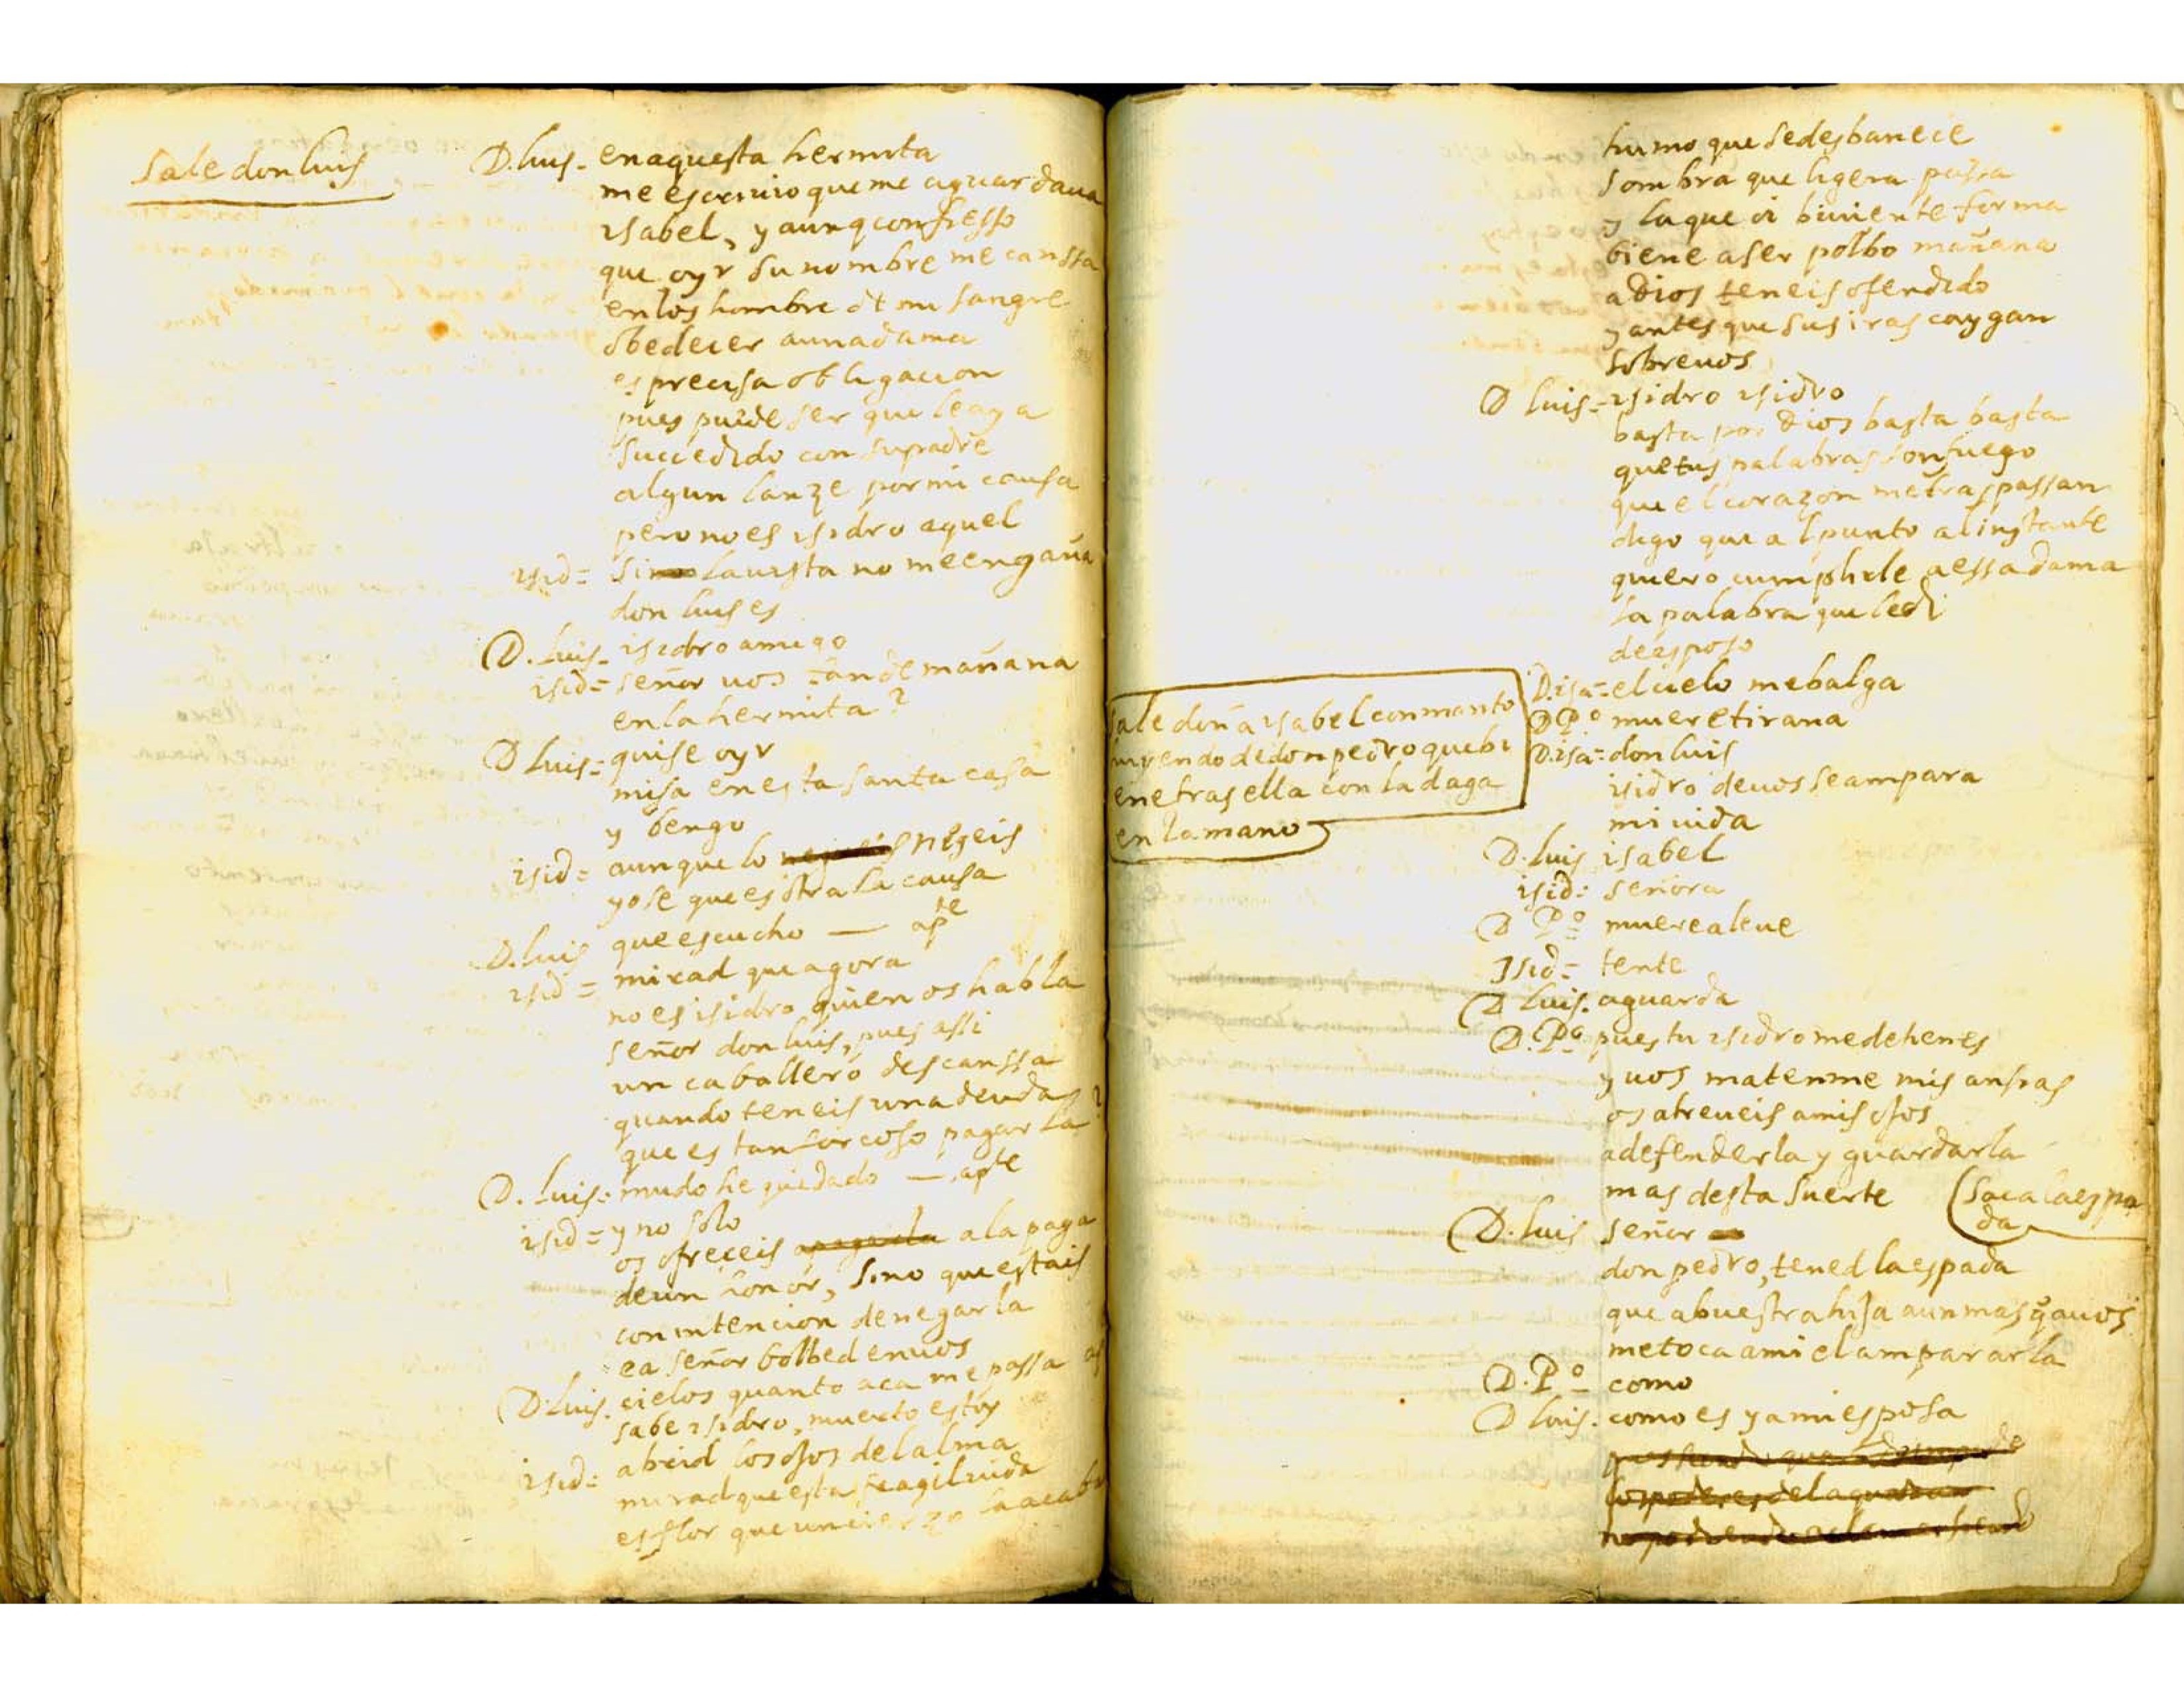 Sale don luis
D. luis- en aquesta hermita
me escriuio que me aguardaua
ysabel, y aunq confiesso
que oyr su nombre me canssa
en los hombre dt mi sangre
obedecer aunadama
es precisa obligacion
pues puede ser que le aya
succedido con su padre
algun lanze por mi causa
pero no es ysidro aquel
ysid= si la uista no me engaña
don luis es
D. luis- isidro amigo
isid= señor uos tan de mañana
en la hermita?
D luis= quise oyr
misa en esta santa casa
y bengo
isid= aunque lo negeis
yo se que es otra la causa
D. luis que escucho — apte
ysid= mirad que agora
no es isidro quien os habla
señor don luis, pues assi
un caballero descanssa
quando teneis una deuda
que es tan forcoso pagarla?
D. luis= mudo he quedado — apte
isid= y no solo
os ofreceis a la paga
de un honor, sino que estais
con intencion de negarla
ea señor bolbed en uos
D. luis. cielos quanto aca me passa
sabe ysidro, muerto estoy
isid= abrid los ojos del alma
mirad que esta fragil uida
es flor que un cierzo la acaba
humo que se desbanece
sombra que ligera passa
y la que oi biuiente forma
biene a ser polbo mañana
a Dios teneis ofendido
y antes que sus iras caygan
sobre uos
D luis- ysidro ysidro
basta por dios basta basta
que tus palabras son fuego
que el corazon me traspassan
digo que al punto al instante
quiero cumplirle a essa dama
la palabra que le di
de esposo
Sale doña ysabel con manto
huyendo de don pedro que bi
ene tras ella con la daga
en la mano
D. isa= el cielo me balga
D Po muere tirana
D. isa= don luis
isidro de uos se ampara
mi uida
D. luis isabel
isid: señora
D Po muere aleue
Jsid= tente
D luis. aguarda
D. Po pues tu ysidro me detienes
y uos matenme mis ansias
os atreueis a mis ojos
a defenderla y guardarla
mas desta suerte (Saca la espa
da
D. luis señor
don pedro, tened la espada
que a buestra hija aun mas q a uos
me toca a mi el ampararla
D. Po como
D luis. como es ya mi esposa